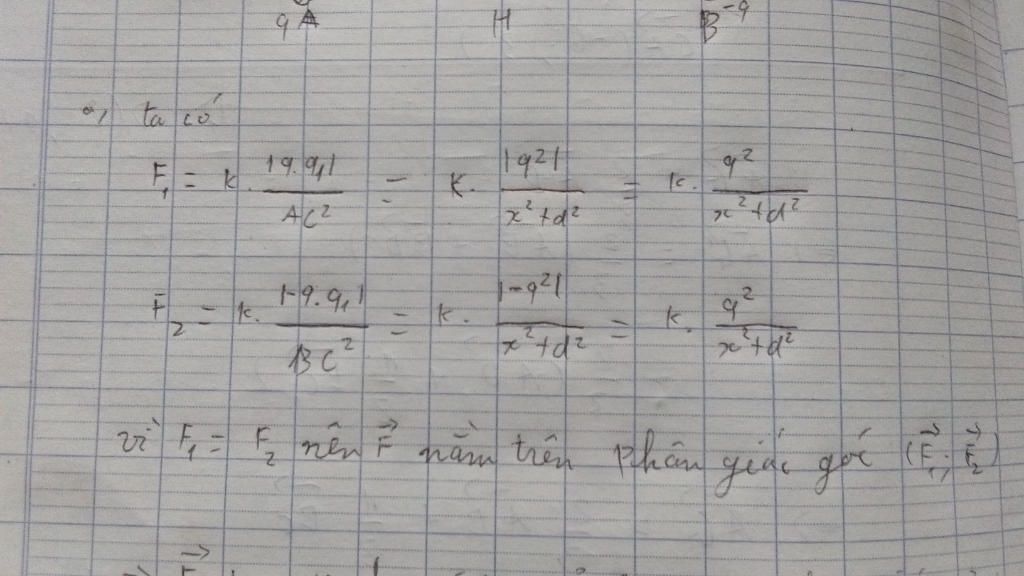 qA H B -q
a, ta có
F₁ = k. |q.q₁| / AC² = K. |q²| / x²+d² = k. q² / x²+d²
F₂ = k. |-q.q₁| / BC² = k. |-q²| / x²+d² = k. q² / x²+d²
vì F₁ = F₂ nên F⃗ nằm trên phân giác góc (F⃗₁; F⃗₂)